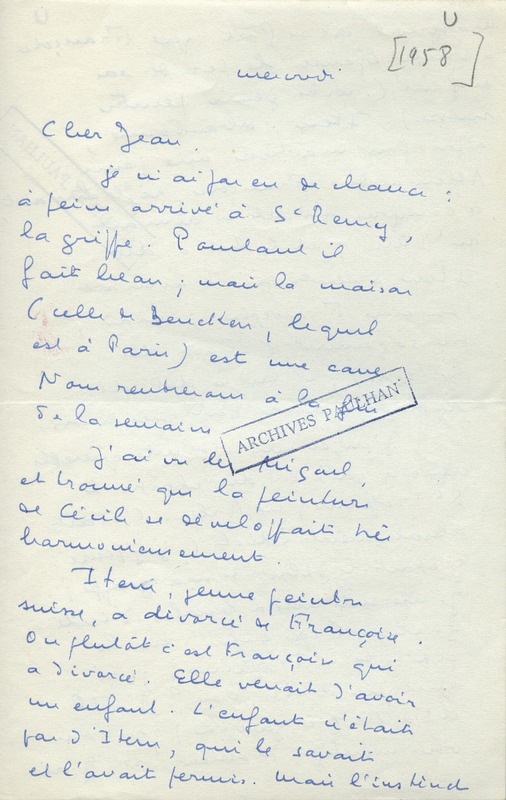 U
[1958]
mercredi
Cher Jean.
je n'ai pas eu de chance :
à peine arrivé à St Remy,
la grippe. Pourtant il
fait beau ; mais la maison
(celle de Beucken, lequel
est à Paris) est une cave
Nous rentrerons à la fin
de la semaine
ARCHIVES PAULHAN
J'ai vu les Miguel,
et trouvé que la peinture
de Cécile se développait très
harmonieusement.
Item, jeune peintre
suisse, a divorcé de Françoise.
Ou plutôt c'est Françoise qui
a divorcé. Elle venait d'avoir
un enfant. L'enfant n'était
pas d'Item, qui le savait
et l'avait permis. Mais l'instinct